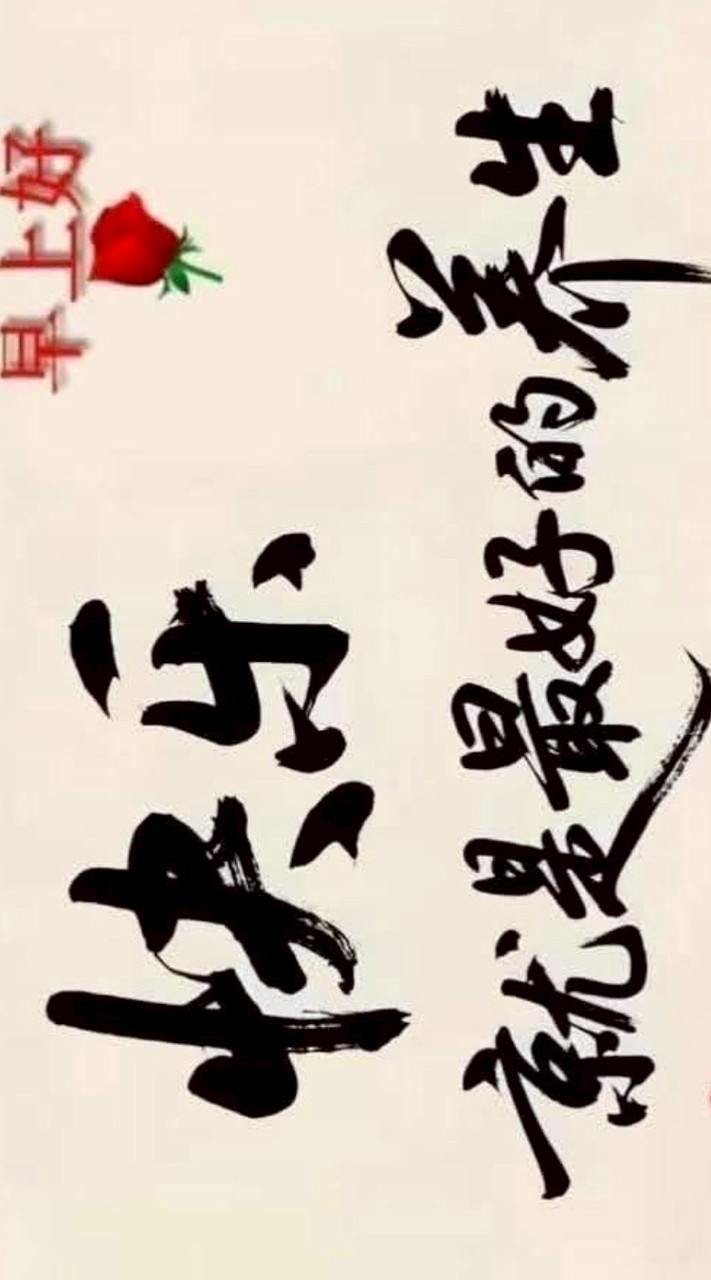 早上好
快乐
就是最好的养生